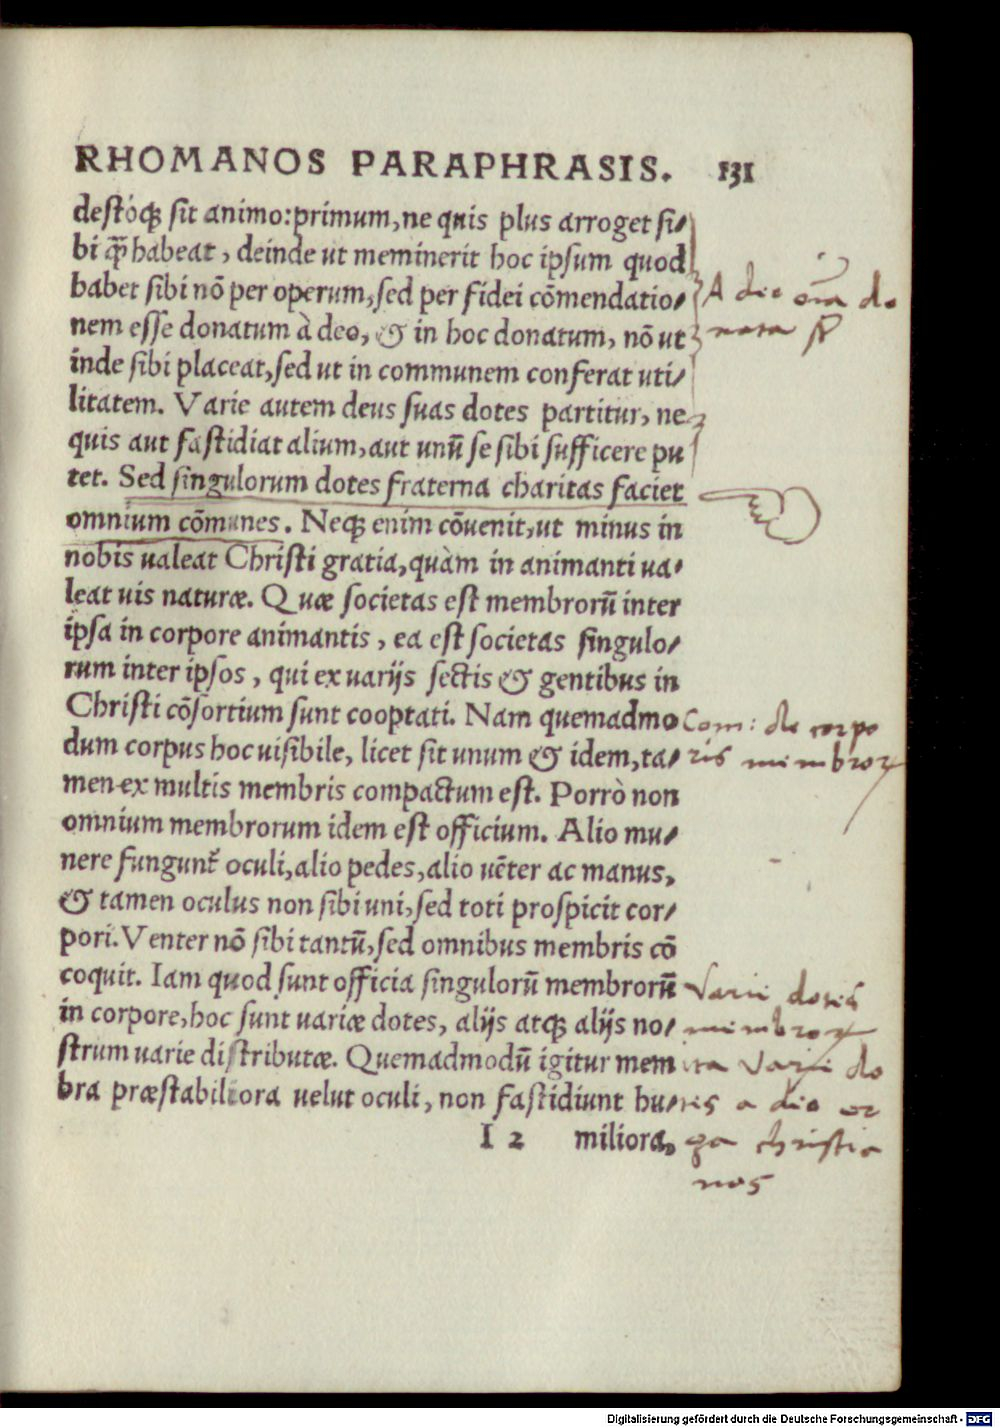 RHOMANOS PARAPHRASIS. 131
destoq́ꝫ sit animo: primum, ne quis plus arroget si/
bi q̃ꝫ habeat, deinde ut meminerit hoc ipsum quod
habet sibi nõ per operum, sed per fidei cõmendatio/
nem esse donatum à deo, & in hoc donatum, nõ ut
inde sibi placeat, sed ut in communem conferat uti/
litatem. Varie autem deus suas dotes partitur, ne
quis aut fastidiat alium, aut unũ se sibi sufficere pu
tet. Sed singulorum dotes fraterna charitas faciet
omnium cõmunes. Neqꝫ enim cõuenit, ut minus in
nobis ualeat Christi gratia, quàm in animanti ua/
leat uis naturæ. Quæ societas est membrorũ inter
ipsa in corpore animantis, ea est societas singulo/
rum inter ipsos, qui ex varijs sectis & gentibus in
Christi cõsortium sunt cooptati. Nam quemadmo
dum corpus hoc uisibile, licet sit unum & idem, ta/
men ex multis membris compactum est. Porrò non
omnium membrorum idem est officium. Alio mu/
nere fungunt᷑ oculi, alio pedes, alio uẽter ac manus,
& tamen oculus non sibi uni, sed toti prospicit cor/
pori. Venter nõ sibi tantũ, sed omnibus membris cõ
coquit. Iam quod sunt officia singulorũ membrorũ
in corpore, hoc sunt uariæ dotes, alijs atqꝫ alijs no/
strum uarie distributæ. Quemadmodũ igitur mem
bra præstabiliora uelut oculi, non fastidiunt hu/
I 2 miliora,
A deo oĩa do
nata sũt
Com: de corpo
ris membroꝝ
Varie dotes
membroꝝ
ita varie do
tes a deo er
ga christia
nos
Digitalisierung gefördert durch die Deutsche Forschungsgemeinschaft - DFG